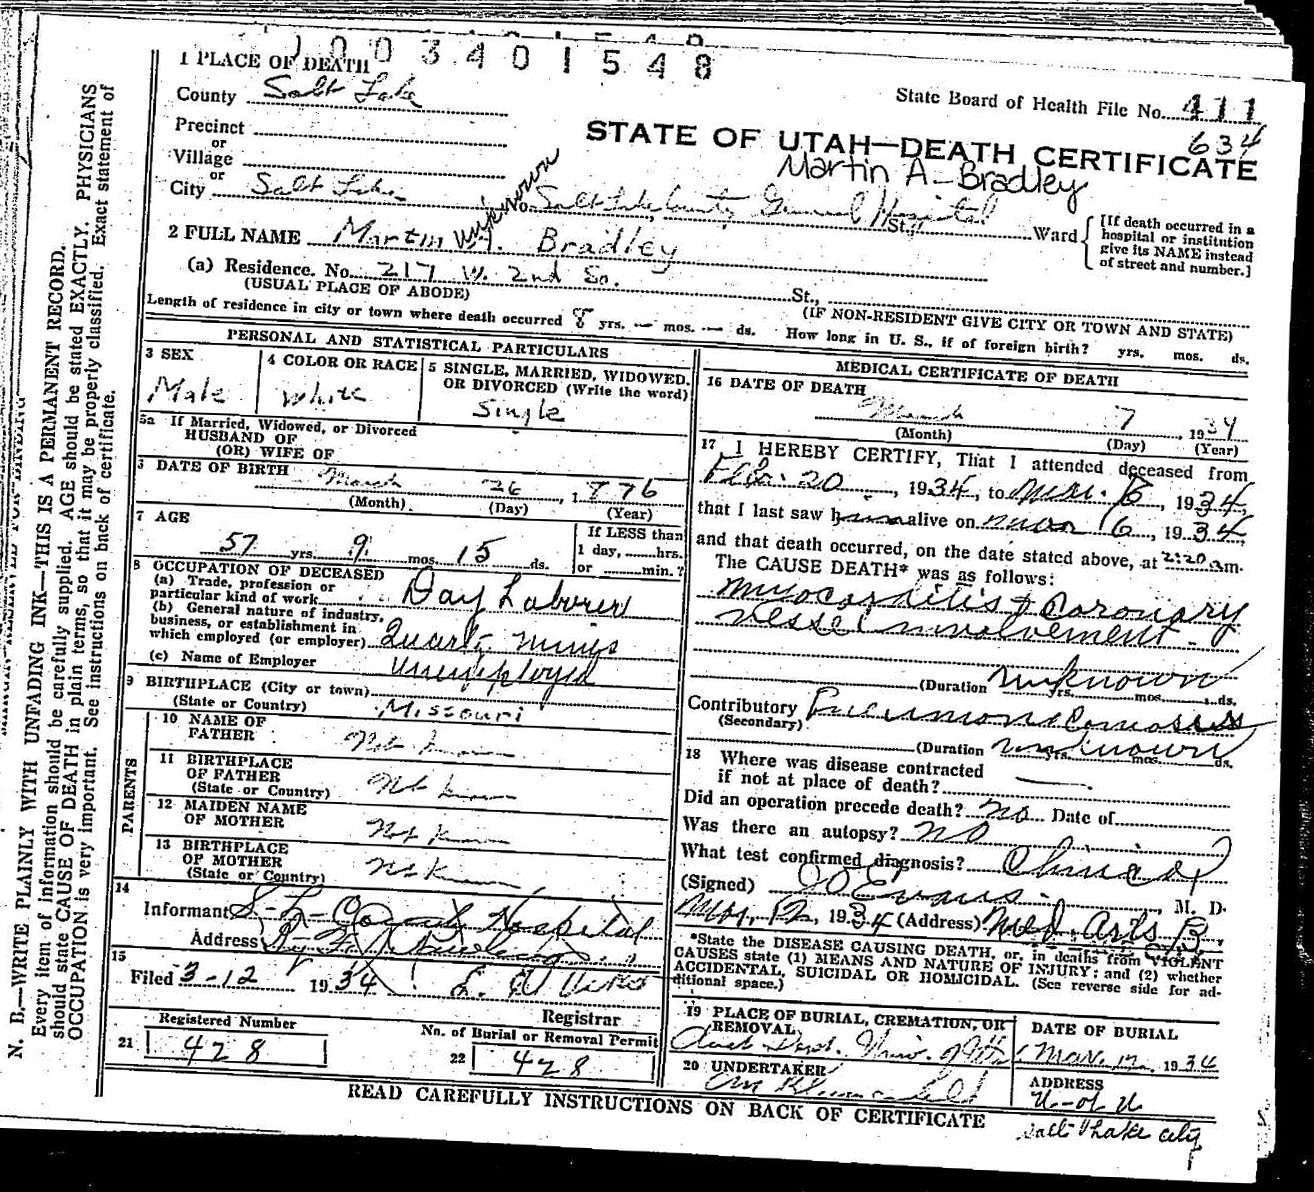 1003401548
1 PLACE OF DEATH
County Salt Lake
State Board of Health File No. 411
634
Precinct
or
Village
or
City Salt Lake
STATE OF UTAH—DEATH CERTIFICATE
Martin A-Bradley
unknown
No. Salt Lake County General Hospital St., Ward
[If death occurred in a hospital or institution give its NAME instead of street and number.]
2 FULL NAME Martin Bradley
(a) Residence. No. 217 W. 2nd So. St.,
(USUAL PLACE OF ABODE)
(IF NON-RESIDENT GIVE CITY OR TOWN AND STATE)
Length of residence in city or town where death occurred 8 yrs. — mos. — ds. How long in U. S., if of foreign birth? yrs. mos. ds.
PERSONAL AND STATISTICAL PARTICULARS
3 SEX
Male
4 COLOR OR RACE
White
5 SINGLE, MARRIED, WIDOWED, OR DIVORCED (Write the word)
Single
5a If Married, Widowed, or Divorced
HUSBAND OF
(OR) WIFE OF
DATE OF BIRTH March 26, 1876
(Month) (Day) (Year)
7 AGE
57 yrs. 9 mos. 15 ds.
If LESS than
1 day, hrs.
or min.?
8 OCCUPATION OF DECEASED
(a) Trade, profession or
particular kind of work Day Laborer
(b) General nature of industry,
business, or establishment in
which employed (or employer) Quartz mines
(c) Name of Employer Unemployed
9 BIRTHPLACE (City or town)
(State or Country) Missouri
PARENTS
10 NAME OF
FATHER Not known
11 BIRTHPLACE
OF FATHER
(State or Country) Not known
12 MAIDEN NAME
OF MOTHER Not known
13 BIRTHPLACE
OF MOTHER
(State or Country) Not known
14
Informant S-L-County Hospital
Address By
15
Filed 3-12 1934
Registrar
Registered Number
21 428
No. of Burial or Removal Permit
22 428
MEDICAL CERTIFICATE OF DEATH
16 DATE OF DEATH
March 7, 1934
(Month) (Day) (Year)
17 I HEREBY CERTIFY, That I attended deceased from
Feb. 20, 1934, to Mar. 6, 1934,
that I last saw him alive on Mar 6, 1934,
and that death occurred, on the date stated above, at 2:20 am.
The CAUSE DEATH* was as follows:
Myocarditis & Coronary
vessel involvement -
(Duration unknown yrs. mos. ds.
Contributory Pneumonoconiosis
(Secondary)
(Duration unknown yrs. mos. ds.
18 Where was disease contracted
if not at place of death?
Did an operation precede death? no Date of
Was there an autopsy? NO
What test confirmed diagnosis? Clinical
(Signed) J O Evans, M. D.
Mar. 12, 1934 (Address) Med. Arts B.
*State the DISEASE CAUSING DEATH, or, in deaths from VIOLENT
CAUSES state (1) MEANS AND NATURE OF INJURY: and (2) whether
ACCIDENTAL, SUICIDAL OR HOMICIDAL. (See reverse side for ad-
ditional space.)
19 PLACE OF BURIAL, CREMATION, OR
REMOVAL
Anat Dept. Univ. of Utah
DATE OF BURIAL
Mar. 12, 1934
20 UNDERTAKER
ADDRESS
U-of U
Salt Lake City
READ CAREFULLY INSTRUCTIONS ON BACK OF CERTIFICATE
N. B.—WRITE PLAINLY WITH UNFADING INK—THIS IS A PERMANENT RECORD.
Every item of information should be carefully supplied. AGE should be stated EXACTLY. PHYSICIANS
should state CAUSE OF DEATH in plain terms, so that it may be properly classified. Exact statement of
OCCUPATION is very important. See instructions on back of certificate.